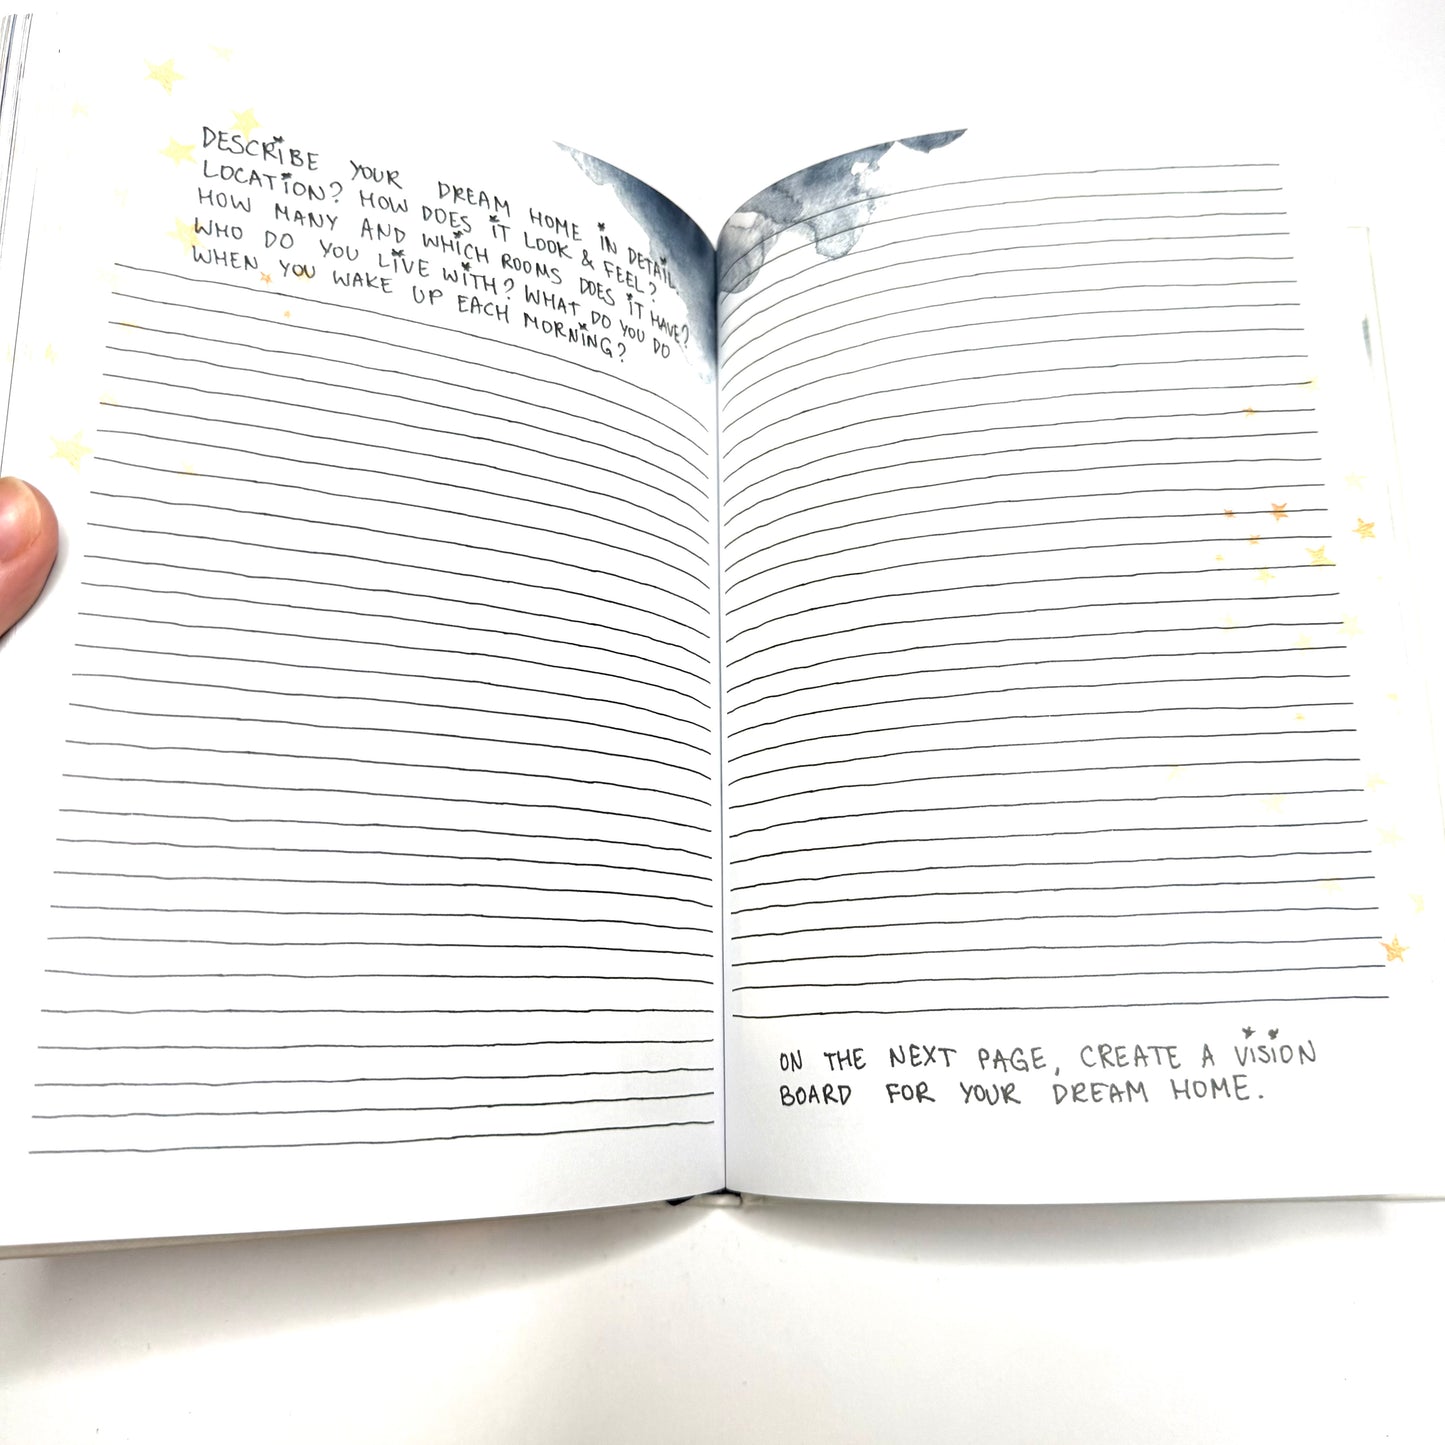 DESCRIBE YOUR DREAM HOME IN DETAIL.
LOCATION? HOW DOES IT LOOK & FEEL?
HOW MANY AND WHICH ROOMS DOES IT HAVE?
WHO DO YOU LIVE WITH? WHAT DO YOU DO
WHEN YOU WAKE UP EACH MORNING?
ON THE NEXT PAGE, CREATE A VISION
BOARD FOR YOUR DREAM HOME.